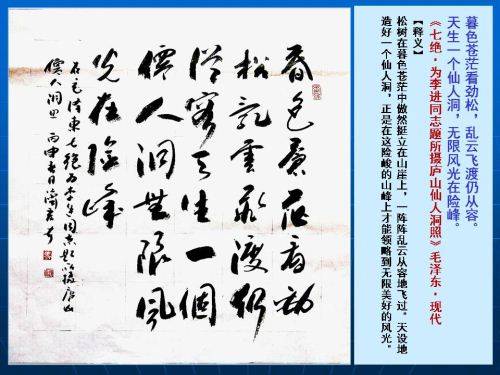 暮色苍茫看劲松，乱云飞渡仍从容。
天生一个仙人洞，无限风光在险峰。
《七绝·为李进同志题所摄庐山仙人洞照》毛泽东·现代
【释义】
松树在暮色苍茫中傲然挺立在山崖上，一阵阵乱云从容地飞过。天设地
造好一个仙人洞，正是在这险峻的山峰上才能领略到无限美好的风光。
暮色蒼茫看劲
松乱雲飛渡仍
從容天生一個
僊人洞無限風
光在險峰
右毛泽東七绝为李进同志题所摄庐山
僊人洞照 丙申春日